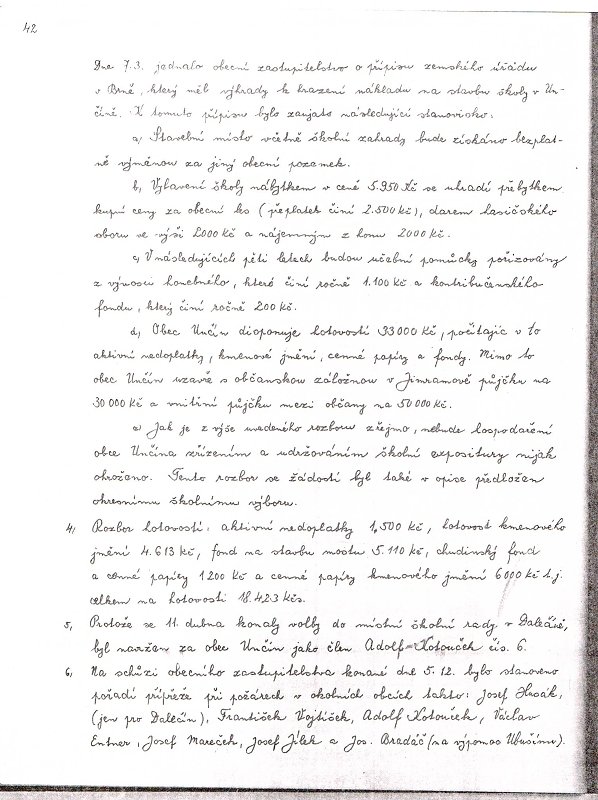 42
Dne 7.3. jednalo obecní zastupitelstvo o přípisu zemského úřadu
v Brně, který měl výhrady k hrazení nákladu na stavbu školy v Un-
číně. K tomuto přípisu bylo zaujato následující stanovisko:
a) Stavební místo včetně školní zahrady bude získáno bezplat-
ně výměnou za jiný obecní pozemek.
b) Vybavení školy nábytkem v ceně 5.950 Kč se uhradí přebytkem
kupní ceny za obecní les (přeplatek činí 2.500 Kč), darem hasičského
sboru ve výši 2000 Kč a nájemným z honu 2000 Kč.
c) V následujících pěti letech budou učební pomůcky pořizovány
z výnosu honebného, které činí ročně 1.100 Kč a kontribučenského
fondu, který činí ročně 200 Kč.
d) Obec Unčín disponuje hotovostí 33000 Kč, počítajíc v to
aktivní nedoplatky, kmenové jmění, cenné papíry a fondy. Mimo to
obec Unčín uzavře s občanskou záložnou v Jimramově půjčku na
30 000 Kč a vnitřní půjčku mezi občany na 50 000 Kč.
e) Jak je z výše uvedeného rozboru zřejmo, nebude hospodaření
obce Unčína zřízením a udržováním školní expositury nijak
ohroženo. Tento rozbor se žádostí byl také v opise předložen
okresnímu školnímu výboru.
4, Rozbor hotovosti: aktivní nedoplatky 1,500 Kč, hotovost kmenového
jmění 4.613 Kč, fond na stavbu mostu 5.110 Kč, chudinský fond
a cenné papíry 1200 Kč a cenné papíry kmenového jmění 6000 Kč t.j.
celkem na hotovosti 18.423 Kčs.
5, Protože se 11. dubna konaly volby do místní školní rady v Dalečíně,
byl navržen za obec Unčín jako člen Adolf Kotouček čís. 6.
6, Na schůzi obecního zastupitelstva konané dne 5.12. bylo stanoveno
pořadí přípřeže při požárech v okolních obcích takto: Josef Husák,
(jen pro Dalečín), František Vojtíšek, Adolf Kotouček, Václav
Entner, Josef Mareček, Josef Jílek a Jos. Bradáč (na výpomoc Ubušínu).